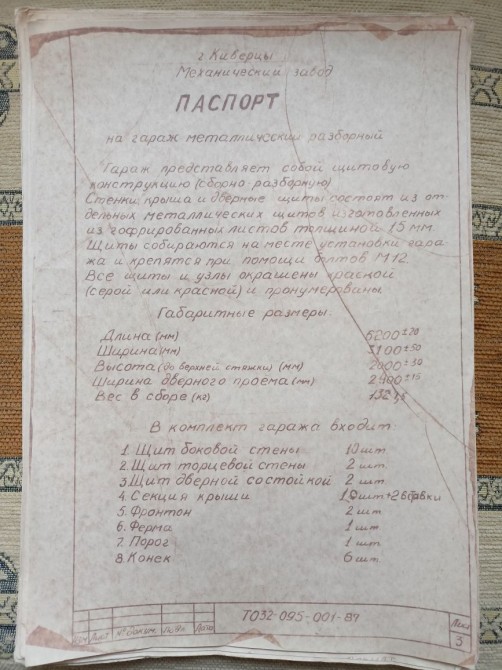 г. Киверцы
Механический завод
ПАСПОРТ
на гараж металлический разборный
Гараж представляет собой щитовую
конструкцию (сборно-разборную)
Стенки крыша и дверные щиты состоят из от-
дельных металлических щитов изготовленных
из гофрированных листов толщиной 1.5 мм.
Щиты собираются на месте установки гара
жа и крепятся при помощи болтов М12.
Все щиты и узлы окрашены краской
(серой или красной) и пронумерованы
Габаритные размеры:
Длина (мм) 5200±20
Ширина (мм) 3100±30
Высота (до верхней стяжки) (мм) 2000±30
Ширина дверного проема (мм) 2400±15
Вес в сборе (кг)
В комплект гаража входит:
1. Щит боковой стены 10 шт.
2. Щит торцевой стены 2 шт.
3. Щит дверной со стойкой 2 шт.
4. Секция крыши 10 шт +
5. Фронтон 2 шт
6. Ферма 1 шт.
7. Порог 1 шт.
8. Конек 6 шт.
Изм Лист № докум. Подп. Дата
ТО32-095-001-87
Лист
3